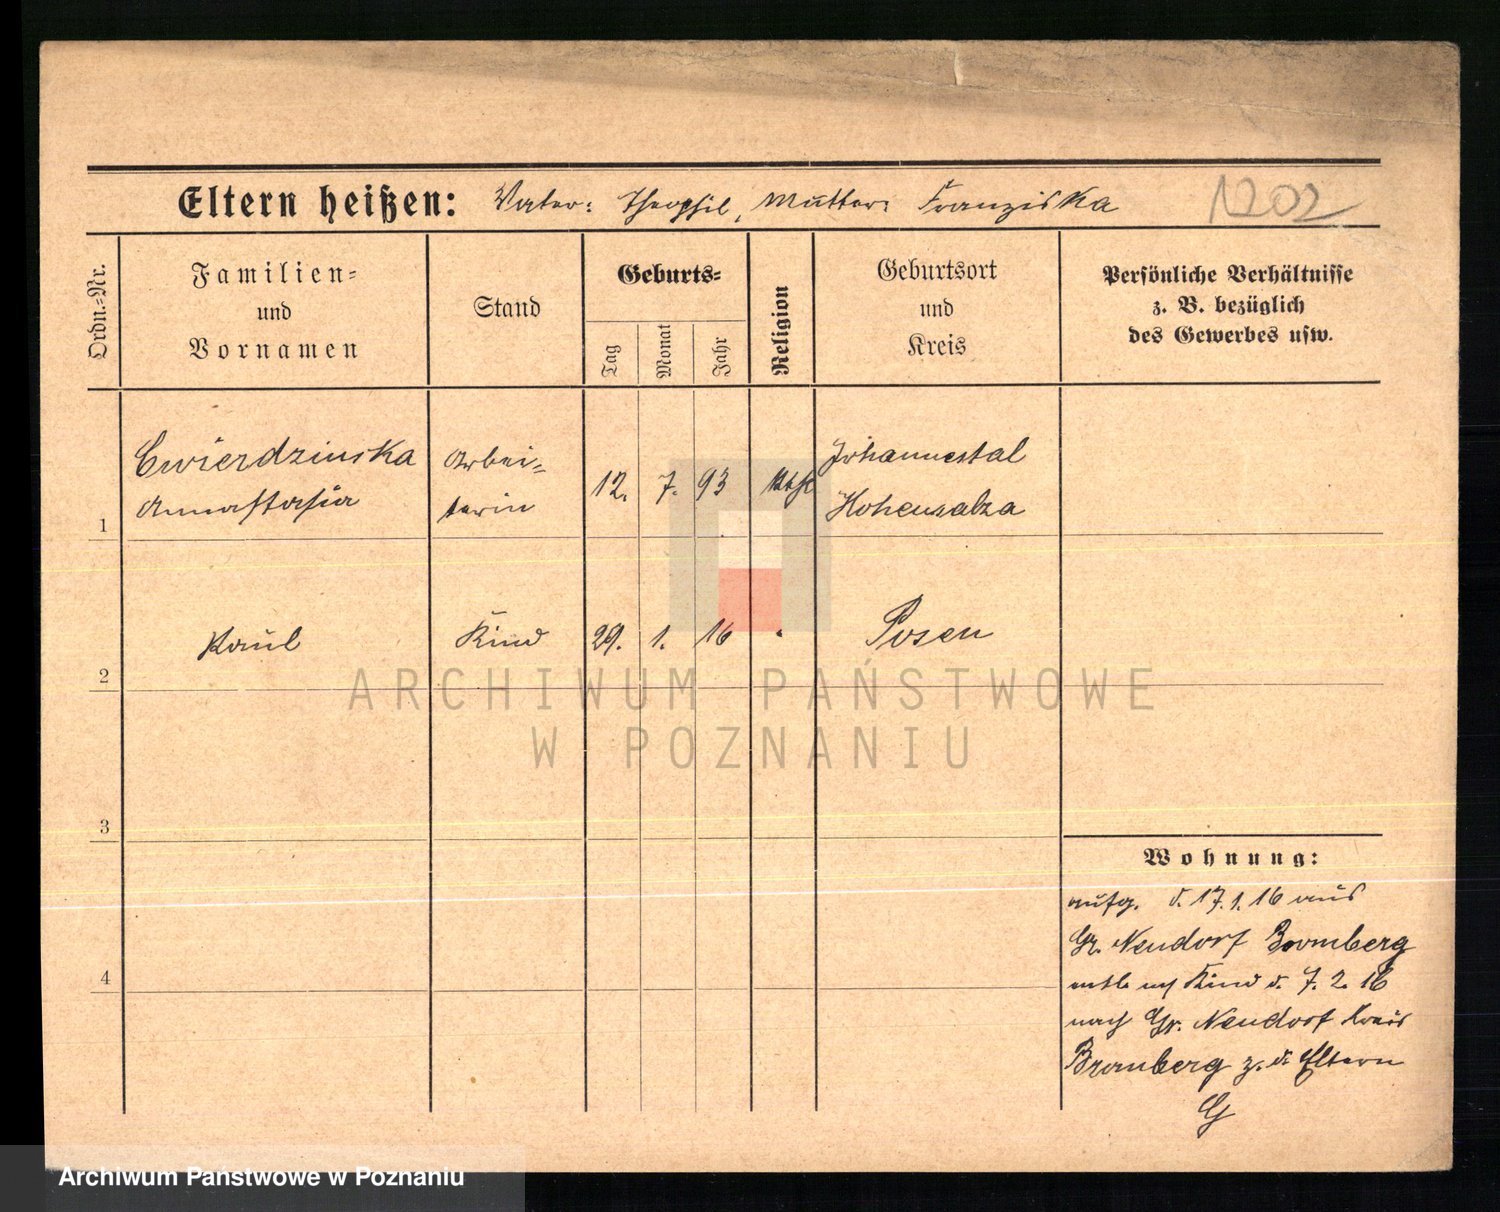 Eltern heißen: Vater: Theophil, Mutter: Franziska 1202
Ordn.=Nr.
Familien=
und
Vornamen
Stand
Geburts=
Tag
Monat
Jahr
Religion
Geburtsort
und
Kreis
Persönliche Verhältnisse
z. B. bezüglich
des Gewerbes usw.
1
Cwierdzinska
Annastasia
Arbei=
terin
12. 7. 93
kth
Johannestal
Hohensalza
2
Paul
Kind
29. 1. 16
Posen
ARCHIWUM PAŃSTWOWE
W POZNANIU
3
4
Wohnung:
aufg. d. 17.1.16 aus
Gr. Neudorf Bromberg
Kind d. 7. 2. 16
nach Gr. Neudorf Kreis
Bromberg z. d. Eltern
G
Archiwum Państwowe w Poznaniu